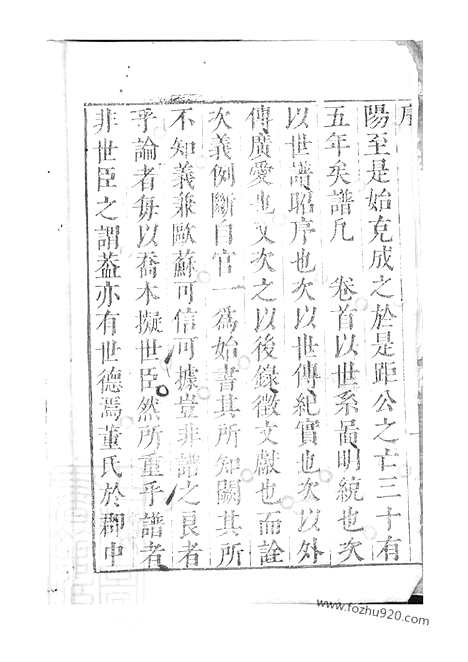 序
陽至是始克成之於是距公之亡三十有
五年矣譜凡　卷首以世系圖明統也次
以世譜昭序也次以世傳紀實也次以外
傳廣愛也又次之以後錄徵文獻也而詮
次義例斷自官一為始書其所知闕其所
不知義兼歐蘇可信可據豈非譜之良者
乎論者每以喬木擬世臣然所重乎譜者
非世臣之謂葢亦有世德焉董氏於郡中
www.fozhu920.com